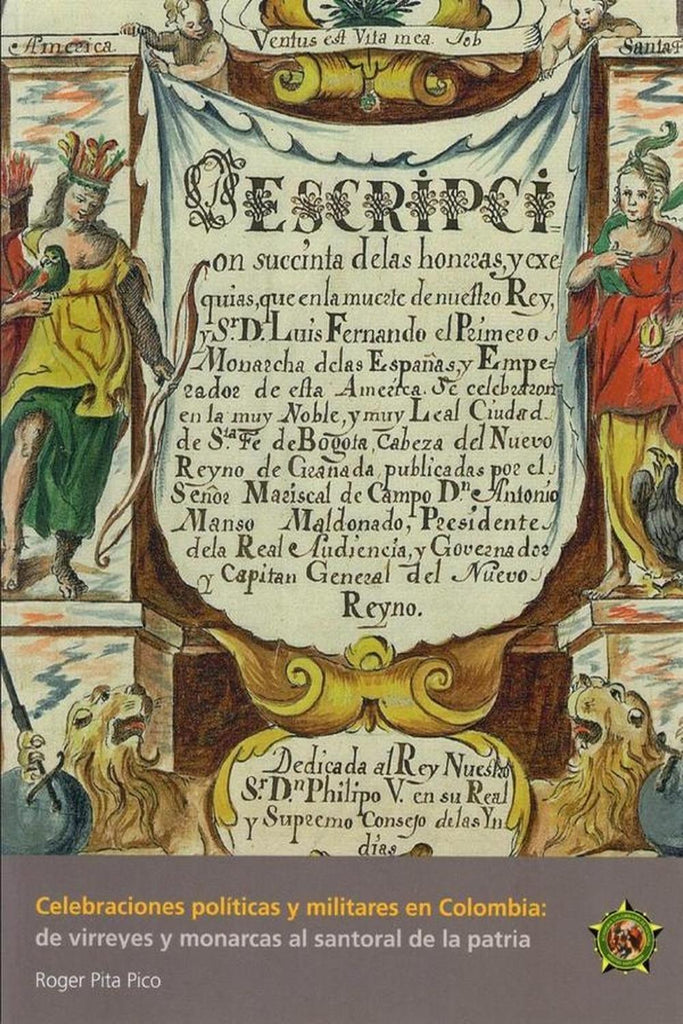 America.
Ventus est Vita mea. Job
Santaf
DESCRIPCI
on succinta delas honrras, y exe
quias, que en la muerte de nuestro Rey,
y Sr. Dn. Luis Fernando el Primero
Monarcha delas Españas, y Empe-
rador de esta America. Se celebraron
en la muy Noble, y muy Leal Ciudad
de Sta Fe de Bogota, Cabeza del Nuevo
Reyno de Granada, publicadas por el
Señor Mariscal de Campo Dn. Antonio
Manso Maldonado, Presidente
dela Real Audiencia, y Governador
y Capitan General del Nuevo
Reyno.
Dedicada al Rey Nuestro
Sr. Dn Philipo V. en su Real
y Supremo Consejo delas Yn
dias
Celebraciones políticas y militares en Colombia:
de virreyes y monarcas al santoral de la patria
Roger Pita Pico